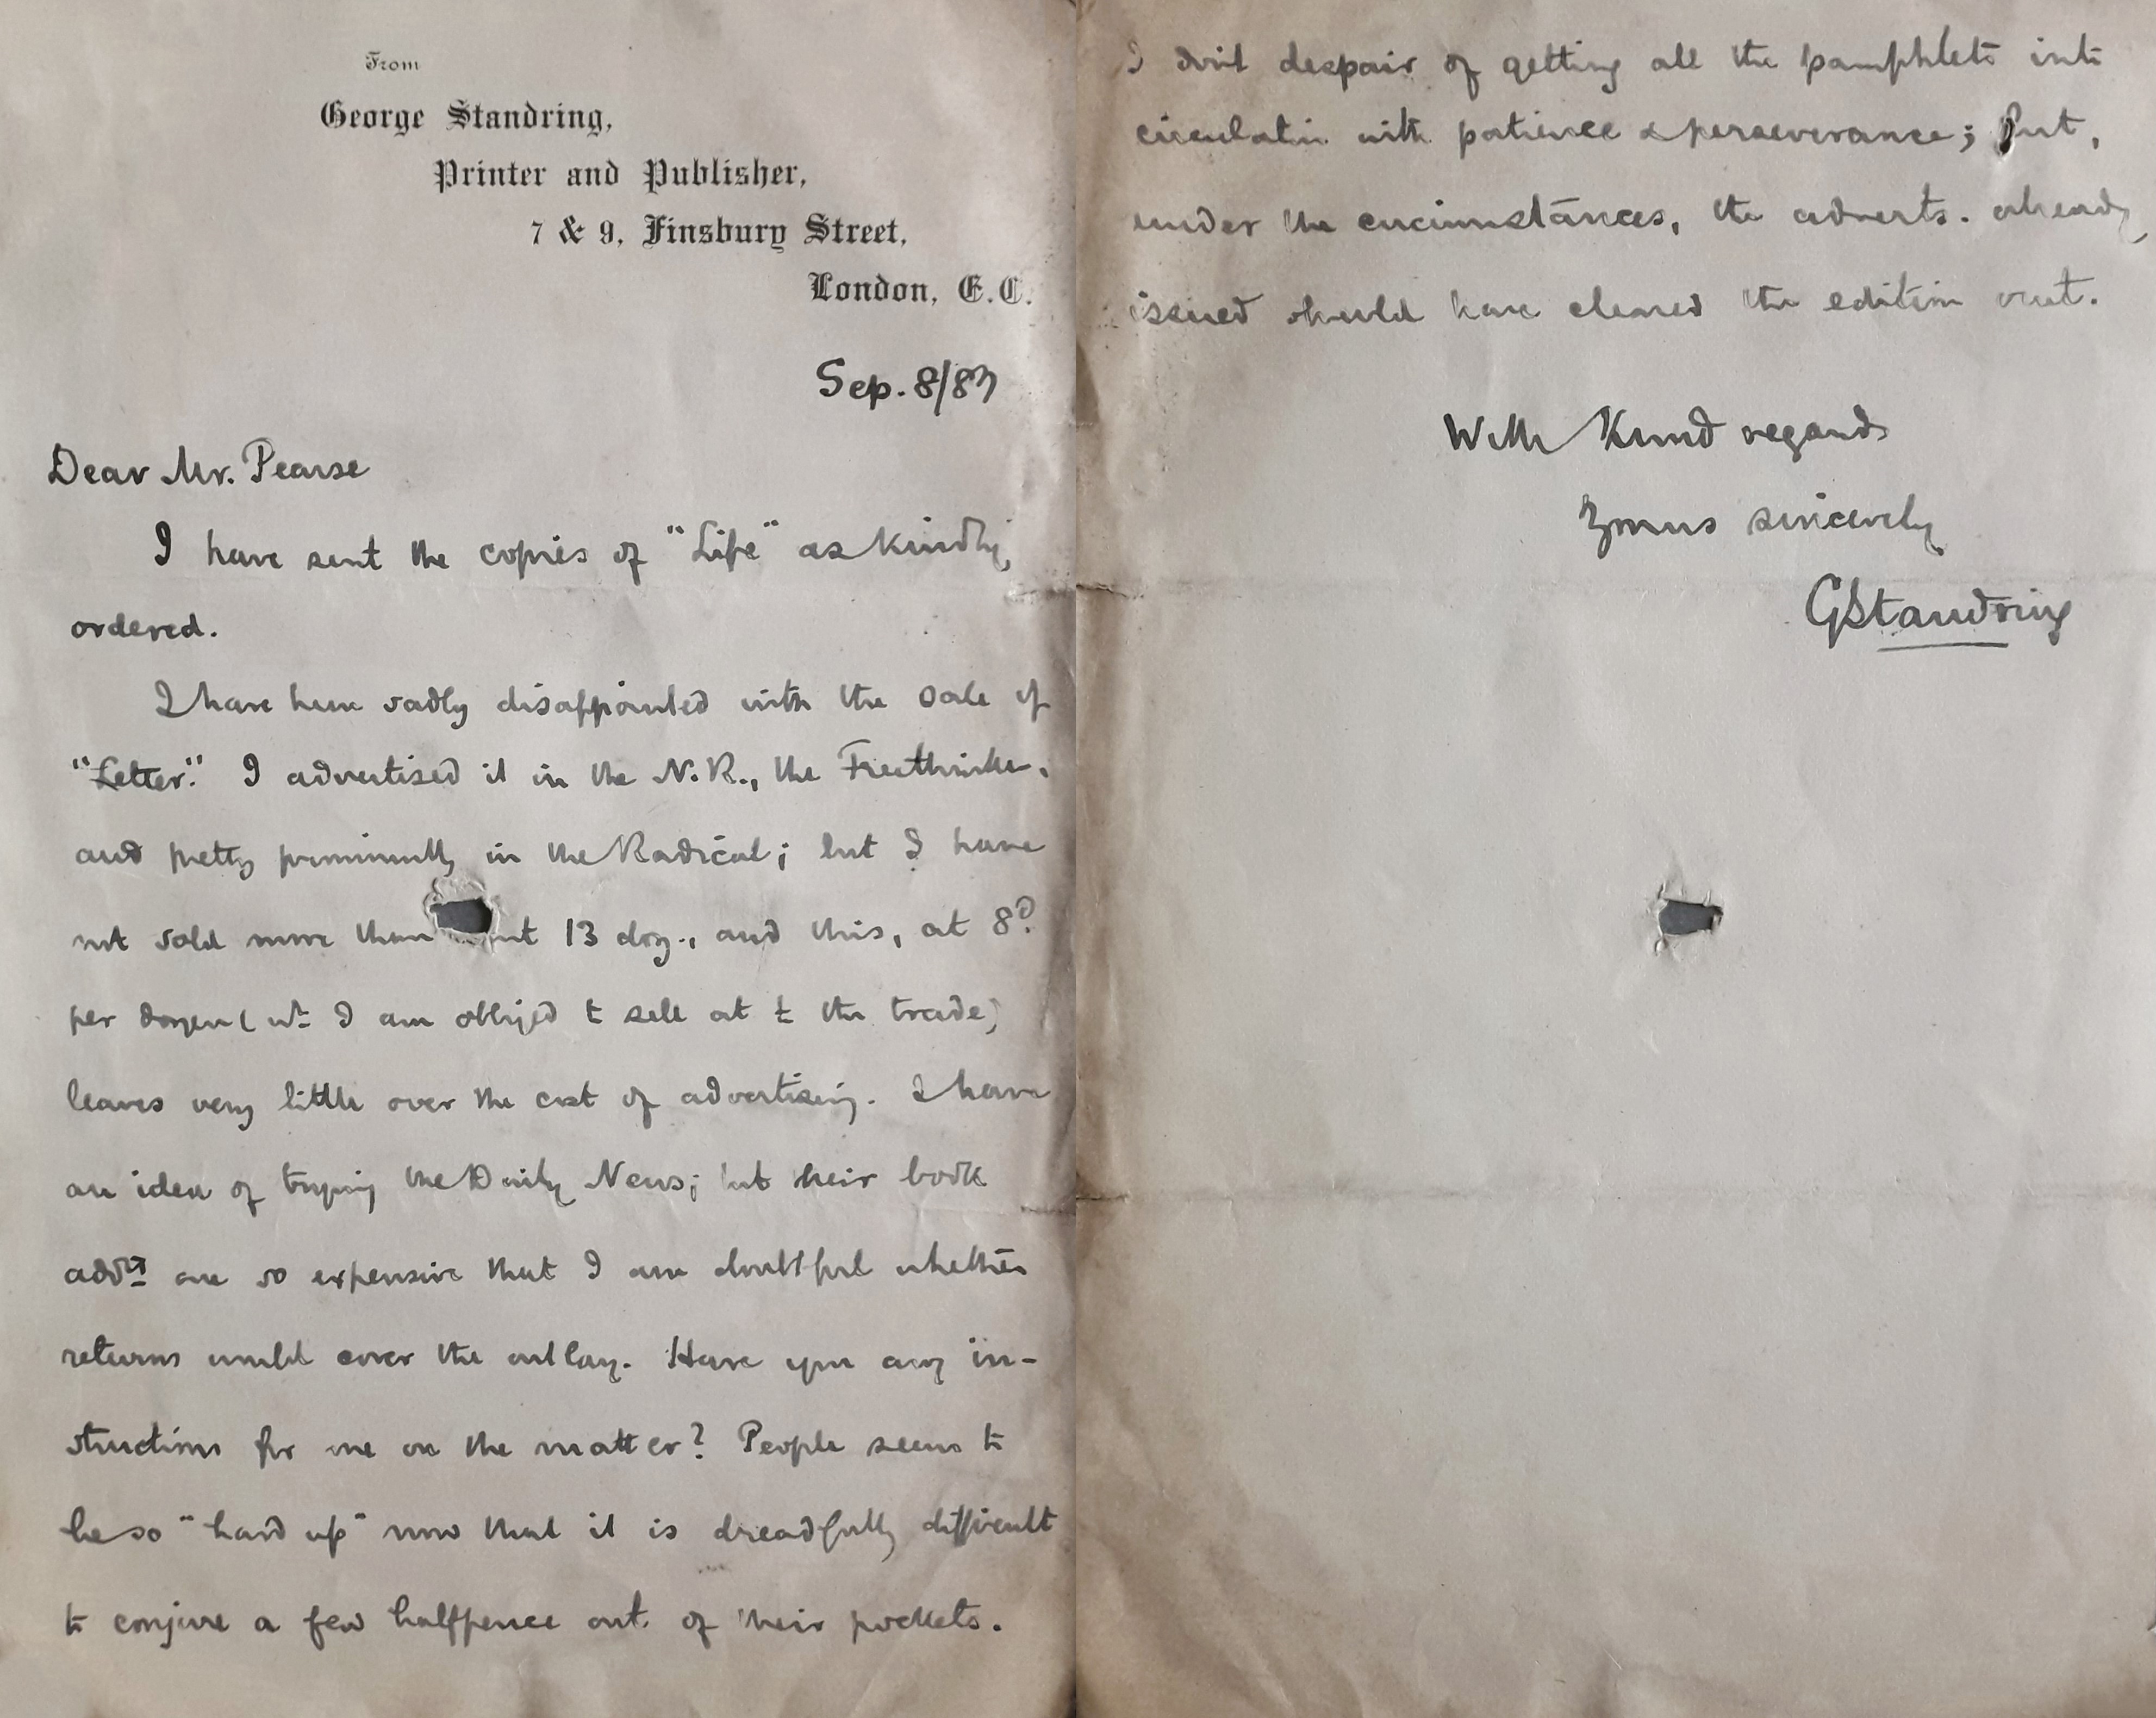 From
George Standring,
Printer and Publisher,
7 & 9, Finsbury Street,
London, E.C.
Sep. 8/87
Dear Mr. Pearse
I have sent the copies of "Life" as kindly
ordered.
I have been sadly disappointed with the sale of
"Letter." I advertised it in the N.R., the Freethinker,
and pretty prominently in the Radical; but I have
not sold more than 13 doz., and this, at 8d
per dozen (wh I am obliged to sell at to the trade)
leaves very little over the cost of advertising. I have
an idea of trying the Daily News; but their book
advts are so expensive that I am doubtful whether
returns would cover the outlay. Have you any in-
structions for me on the matter? People seem to
be so "hard up" now that it is dreadfully difficult
to conjure a few halfpence out of their pockets.
I don't despair of getting all the pamphlets into
circulation with patience & perseverance; but,
under the circumstances, the adverts. already
issued should have cleared the edition out.
With Kind regards
Yours sincerely
GStandring